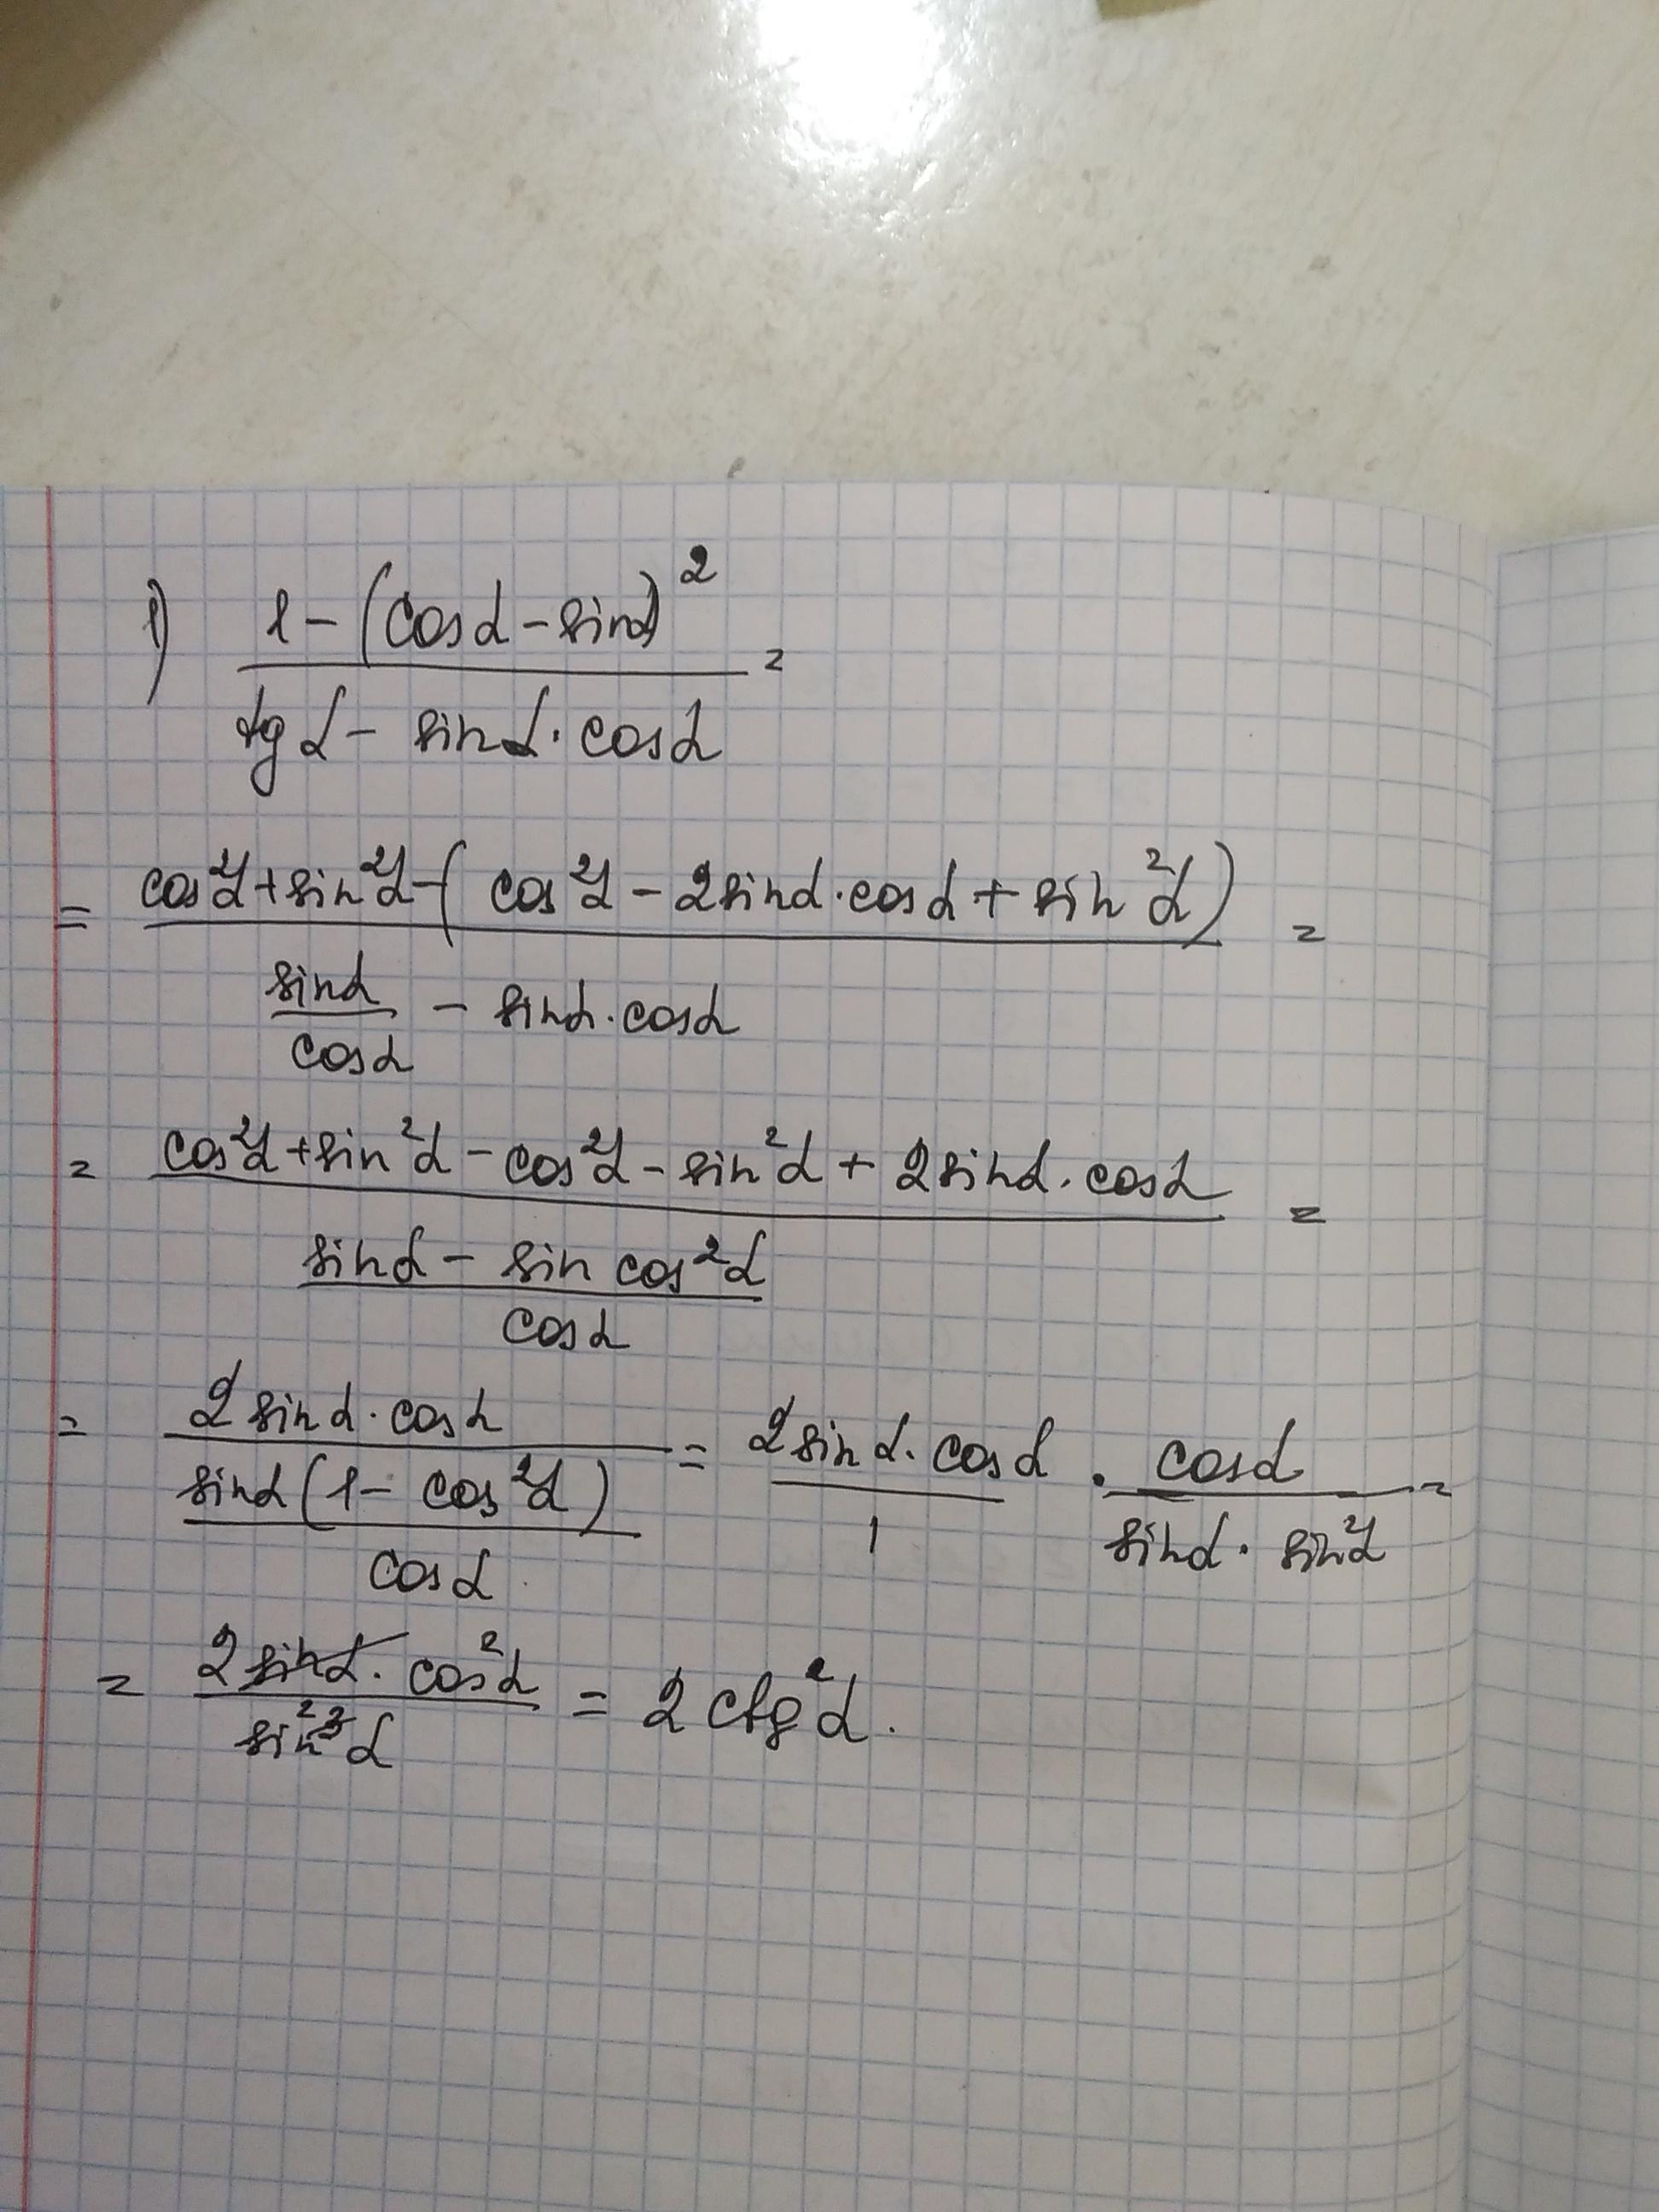 1) (1 - (cosα - sinα)²) / (tgα - sinα · cosα) =
= (cos²α + sin²α - (cos²α - 2sinα · cosα + sin²α)) / (sinα/cosα - sinα · cosα) =
= (cos²α + sin²α - cos²α - sin²α + 2sinα · cosα) / ((sinα - sin cos²α)/cosα) =
= (2sinα · cosα) / ((sinα(1 - cos²α))/cosα) = (2sinα · cosα)/1 · cosα/(sinα · sin²α) =
= (2sinα · cos²α) / (sin³ ²α) = 2ctg²α.